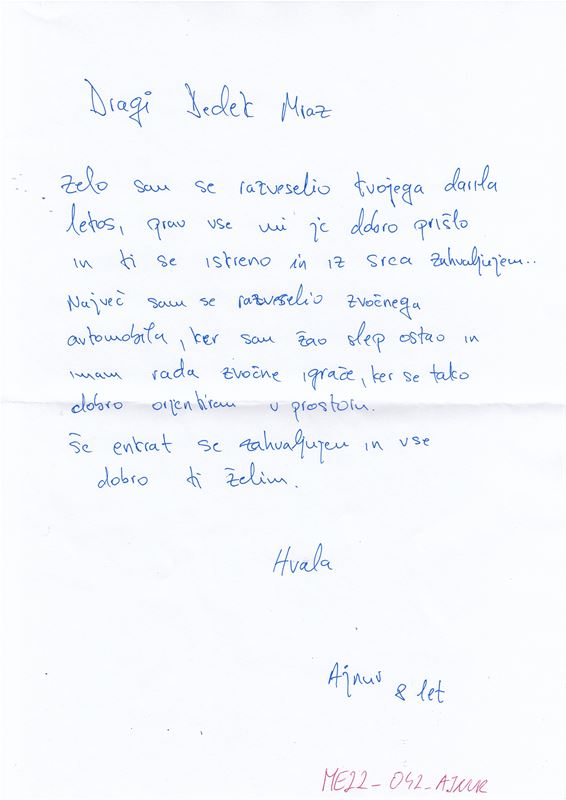 Dragi Dedek Mraz
Zelo sam se razveselio tvojega darila
letos, prav vse mi je dobro prišlo
in ti se istreno in iz srca zahvaljujem..
Največ sam se razveselio zvočnega
avtomobila, ker sam žao slep ostao in
imam rada zvočne igrače, ker se tako
dobro orjentiram u prostoru.
Še enkrat se zahvaljujem in vse
dobro ti želim.
Hvala
Ajnur 8 let
ME22-042-AJNUR